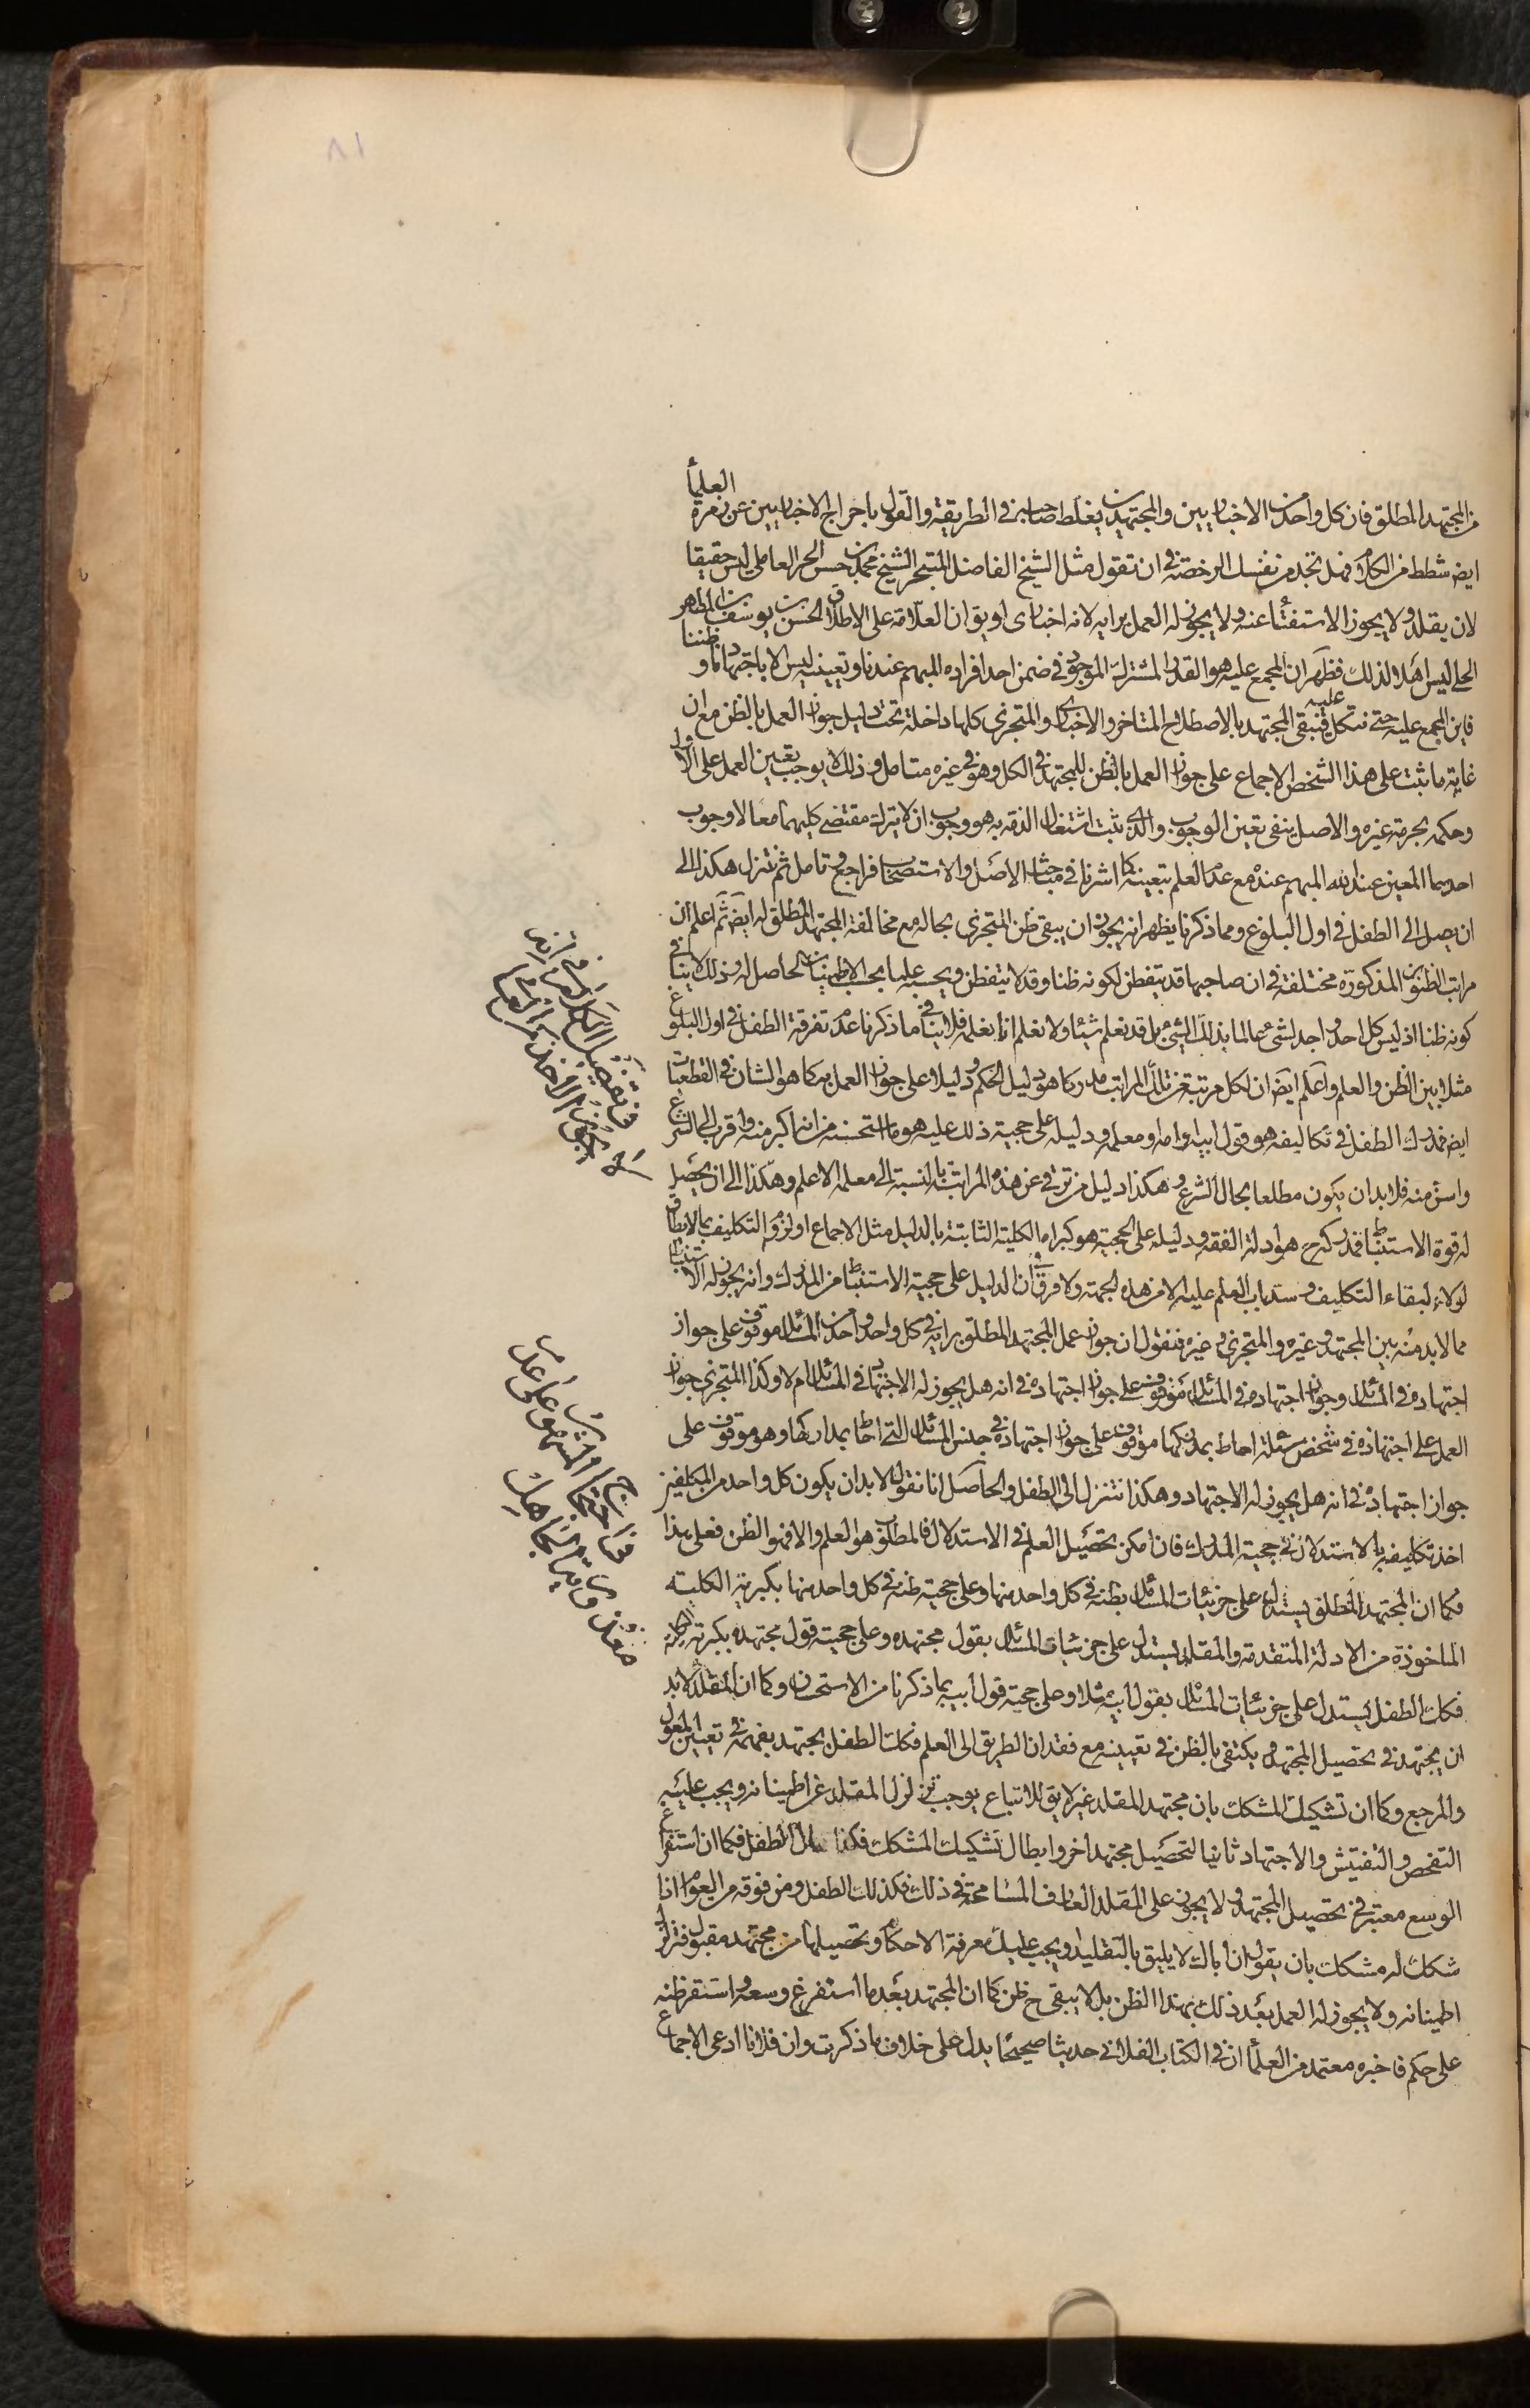 ٨١
من المجتهد المطلق فان كل واحد من الاخباريين والمجتهدين يغلط صاحبه في الطريقة والقول باخراج الاخباريين عن زمرة العلمأ
ايض شطط من الكلام فهل تجد من نفسك الرخصة في ان تقول مثل الشيخ الفاضل المتبحر الشيخ محمد بن حسن الحر العاملي ليس حقيقا
لان يقلد ولا يجوز الاستفتاء عنه ولا يجوز له العمل برايه لانه اخباري او يق ان العلامة على الاطلاق الحسن بن يوسف بن المطهر
الحلي ليس اهلا لذلك فظهر ان المجمع عليه هو القدر المشترك الموجود في ضمن احد افراده المبهم عندنا وتعيينه ليس الا باجتهادنا وظننا
فاين المجمع عليه حتى نتكل عليه فنبقى المجتهد بالاصطلاح المتاخر والاخباري والمتجزي كلها داخلة تحت دليل جواز العمل بالظن مع ان
غاية ما ثبت على هذا الشخص الاجماع على جواز العمل بالظن للمجتهد في الكل وهو في غيره متامل وذلك لا يوجب تعين العمل على الاول
وحكمه بحرمة غيره والاصل ينفي تعين الوجوب والذي يثبت اشتغال الذمة به هو وجوب ان لا يترك مقتضى كليهما معا لا وجوب
احدهما المعين عند الله المبهم عنده مع عدم العلم بتعيينه كما اشرنا في مباحث الاصل والاستصحاب فراجع وتامل ثم تنزل هكذا الى
ان يصل الى الطفل في اول البلوغ ومما ذكرنا يظهر انه يجوز ان يبقى ظن المتجزي بحاله مع مخالفة المجتهد المطلق له ايض ثم اعلم ان
مراتب الظنون المذكورة مختلفة في ان صاحبها قد يتفطن لكونه ظنا وقد لا يتفطن ويحسبه علما بحسب الاطمينان الحاصل له وذلك لا ينافي
كونه ظنا اذ ليس كل احد واجد لشيء عالما بذلك الشيء بل قد نعلم شيئا ولا نعلم انا نعلمه فلا ينافي ما ذكرنا عدم تفرقة الطفل في اول البلوغ
مثلا بين الظن والعلم واعلم ايض ان لكل مرتبة من تلك المراتب مدركا هو دليل الحكم ودليلا على جواز العمل به كما هو الشان في القطعيات
ايض فمدرك الطفل في تكاليفه هو قول ابيه وامه ومعلمه ودليله على حجية ذلك عليه هو ما استحسنه من انه اكبر منه واقرب الى الشرع
واسن منه فلا بد ان يكون مطلعا بحال الشرع وهكذا دليل من ترقى عن هذه المراتب بالنسبة الى معلمه الاعلم وهكذا الى ان يحصل
له قوة الاستنباط فمدركه ح هو ادلة الفقه ودليله على الحجية هو كبراه الكلية الثابتة بالدليل مثل الاجماع او لزوم التكليف بما لا يطاق
لولاه لبقاء التكليف وسد باب العلم عليه الا من هذه الجهة ولا فرق في ان الدليل على حجية الاستنباط من المدرك وانه يجوز له الاستنباط
مما لا بد منه بين المجتهد وغيره والمتجزي وغيره فنقول ان جواز عمل المجتهد المطلق برايه في كل واحد واحد من المسائل موقوف على جواز
اجتهاده في المسائل وجواز اجتهاده في المسائل موقوف على جواز اجتهاده في انه هل يجوز له الاجتهاد في المسائل ام لا وكذا المتجزي جواز
العمل على اجتهاده في شخص مسئلة احاط بمدركها موقوف على جواز اجتهاده في جنس المسائل التي احاط بمداركها وهو موقوف على
جواز اجتهاده في انه هل يجوز له الاجتهاد وهكذا نتنزل الى الطفل والحاصل انا نقول لا بد ان يكون كل واحد من المكلفين
اخذ تكليفه بالاستدلال في حجية المدرك فان امكن تحصيل العلم في الاستدلال فالمطلوب هو العلم والا فهو الظن فعلى هذا
فكما ان المجتهد المطلق يستدل على جزئيات المسائل بظنه في كل واحد منها وعلى حجية ظنه في كل واحد منها بكبريته الكلية
الماخوذة من الادلة المتقدمة والمقلد يستدل على جزئيات المسائل بقول مجتهده وعلى حجية قول مجتهده بكبريته الكلية
فكك الطفل يستدل على جزئيات المسائل بقول ابيه مثلا وعلى حجية قول ابيه بما ذكرنا من الاستحسان وكما ان المقلد لا بد
ان يجتهد في تحصيل المجتهد ويكتفي بالظن في تعيينه مع فقدان الطريق الى العلم فكك الطفل يجتهد بفهمه في تعيين المعول
والمرجع وكما ان تشكيك المشكك بان مجتهد المقلد غير لايق للاتباع يوجب تزلزل المقلد عن اطمينانه ويجب عليه
التفحص والتفتيش والاجتهاد ثانيا لتحصيل مجتهد اخر وابطال تشكيك المشكك فكذا حال الطفل فكما ان استفراغ
الوسع معتبر في تحصيل المجتهد ولا يجوز على المقلد العارف المسامحة في ذلك فكذلك الطفل ومن فوقه من العوام اذا
شكك له مشكك بان يقول ان اباك لا يليق بالتقليد ويجب عليك معرفة الاحكام وتحصيلها من مجتهد مقبول فتزلزل
اطمينانه ولا يجوز له العمل بعد ذلك بهذا الظن بل لا يبقى ح ظن كما ان المجتهد بعد ما استفرغ وسعه واستقر ظنه
على حكم فاخبره معتمد من العلمأ ان في الكتاب الفلاني حديثا صحيحا يدل على خلاف ما ذكرت وان فلانا ادعى الاجماع
في تفصيل الكلام في انه
لا يجوز الاخذ من العلماء
المشهور على عدم
معذورية الجاهل